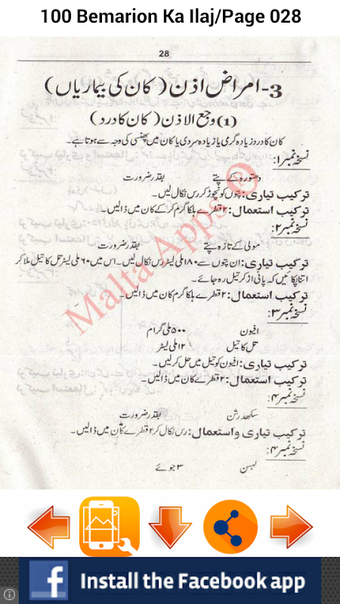 100 Bemarion Ka Ilaj/Page 028
28
3-امراض اذن (کان کی بیماریاں)
(1) وجع الاذن (کان کا درد)
کان کا درد زیادہ گرمی یا زیادہ سردی یا کان میں پھنسی کی وجہ سے ہوتا ہے۔
نسخہ نمبر ۱:
دھتورہ کے پتے بقدر ضرورت
ترکیب تیاری: پتوں کو نچوڑ کر رس نکال لیں۔
ترکیب استعمال: ۲ قطرے ہلکا گرم کر کے کان میں ڈالیں۔
نسخہ نمبر ۲:
مولی کے تازہ پتے بقدر ضرورت
ترکیب تیاری: ان پتوں سے ۱۸۰ ملی لیٹر رس نکال لیں۔ اس میں ۶۰ ملی لیٹر تل کا تیل ملا کر
اتنا پکائیں کہ پانی اڑ کر تیل رہ جائے۔
ترکیب استعمال: ۲ قطرے ہلکا گرم کان میں ڈالیں۔
نسخہ نمبر ۳:
افیون ۵۰۰ ملی گرام
تل کا تیل ۱۲ ملی لیٹر
ترکیب تیاری: افیون کو تیل میں حل کر لیں۔
ترکیب استعمال: ۲ قطرے کان میں ڈالیں۔
نسخہ نمبر ۴:
سکھدرشن بقدر ضرورت
ترکیب تیاری و استعمال: رس نکال کر ۲ قطرے کان میں ڈالیں۔
نسخہ نمبر ۴:
لہسن ۳ جوئے
Malta Apps
Install the Facebook app